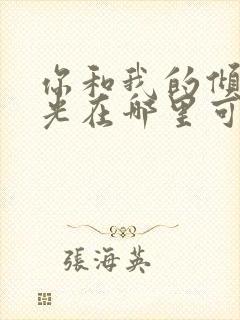 你和我的倾
光在哪里可
張海英